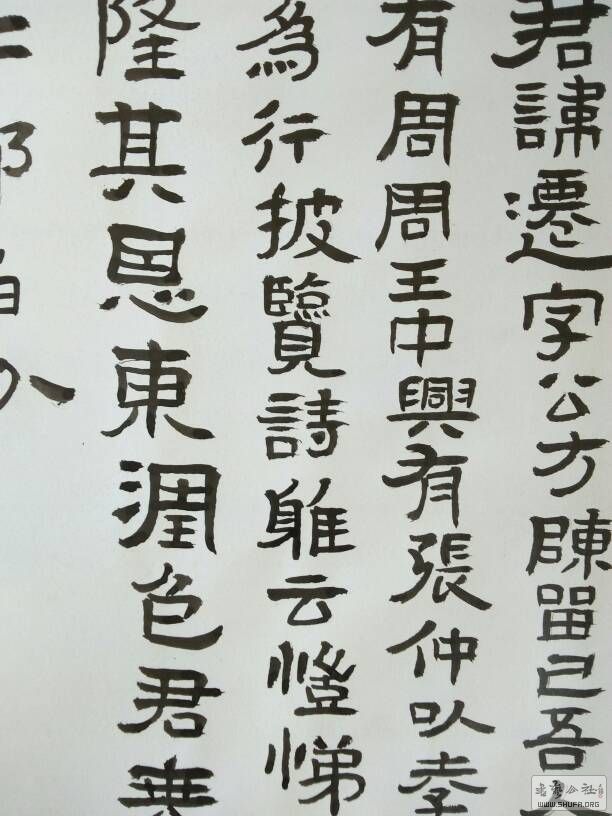 君諱遷字公方陳留己吾人
有周周王中興有張仲以孝
為行披覽詩雅云愷悌
隆其恩東潤色君垂
書藝公社
WWW.SHUFA.ORG